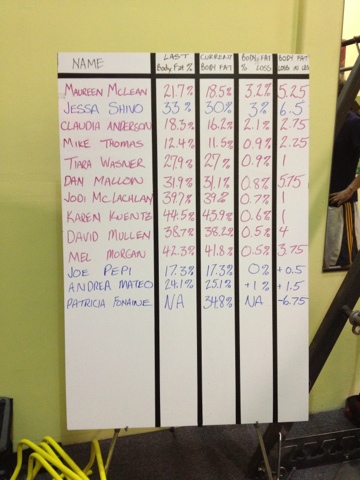 NAME LAST Body Fat % CURRENT BODY FAT BODY FAT % LOSS BODY FAT LOSS IN LBS
MAUREEN McLEAN 21.7% 18.5% 3.2% 5.25
JESSA SHIVO 33% 30% 3% 6.5
CLAUDIA ANDERSON 18.3% 16.2% 2.1% 2.75
MIKE THOMAS 12.4% 11.5% 0.9% 2.25
TIARA WASNER 27.9% 27% 0.9% 1
DAN MALLOIN 31.9% 31.1% 0.8% 5.75
JODI McLACHLAN 39.7% 39% 0.7% 1
KAREN KUENTZ 44.5% 43.9% 0.6% 1
DAVID MULLEN 38.7% 38.2% 0.5% 4
MEL MORGAN 42.3% 41.8% 0.5% 3.75
JOE PEPI 17.3% 17.3% 0% +0.5
ANDREA MATEO 24.1% 25.1% +1% +1.5
PATRICIA FONAINE NA 34.8% NA -6.75